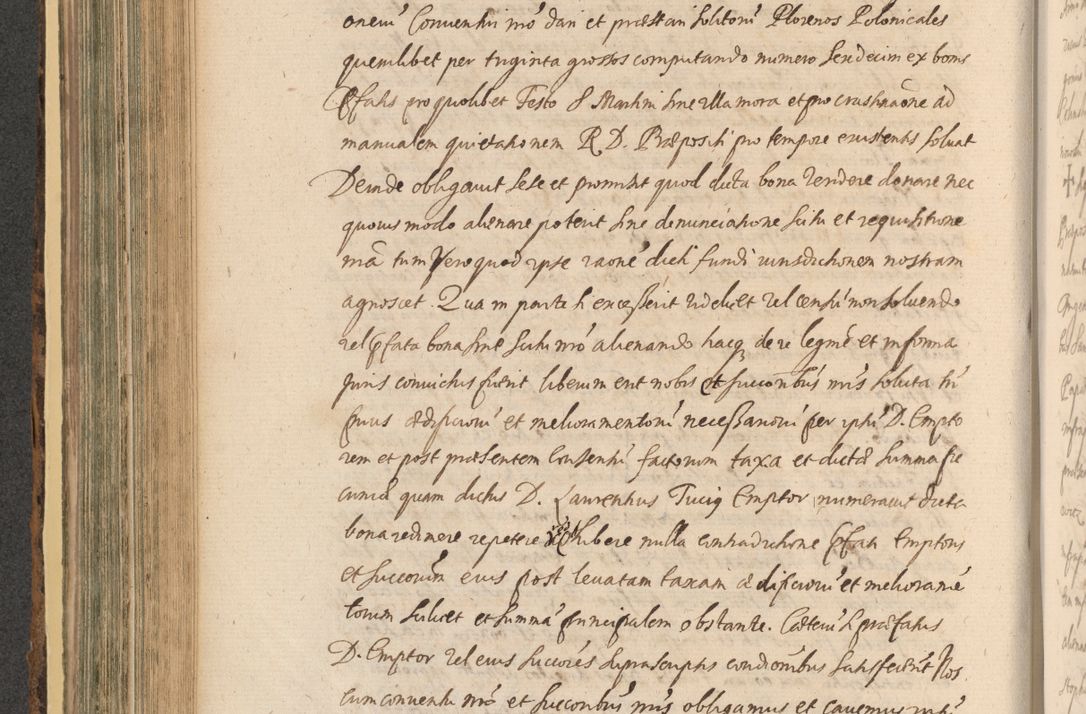 onem̃ Conventui nr̃o dari et præstari solitorũ Florenos Polonicales
quemlibet per triginta grossos computando numero sendecim ex bonis
p̃fatis pro quolibet Festo S Martini sine illa mora et procrastinaõne ad
manualem quietationem R. D. Præpositi pro tempore existentis solvat
Deinde obligavit sese et promisit quod dicta bona vendere donare nec
quovis modo alienare poterit sine denunciatione scitu et requisitione
nr̃a tum vero quod ipse raõne dicti fundi iurisdictionem nostram
agnoscet. Qua in parte si excesserit videlicet vel censũ non solvendo
vel p̃fata bona sine scitu nr̃o alienando hacq de re legitimè et in forma
iuris convictus fuerit liberum erit nobis et successoribus nr̃is soluta
prius ædificiorũ et melioramentorũ necessariorũ per ipsũ D. Empto
rem et post præsentem consensũ factorum taxa et dicta summa pe
cuniæ quam dictus D. Laurentius Emptor numeravit dicta
bona redimere repetere nulla contradictione p̃fati Emptoris
et succorũm eius post levatam taxam ædificiorũ et melioramẽ
torum scilicet et summã principalem obstante. Cæterũ si præfatus
D. Emptor vel eius succores suprascriptis conditionibus satisfecerit Nos
cum conventu nr̃o et succoribus nr̃is obligamus et cavemus